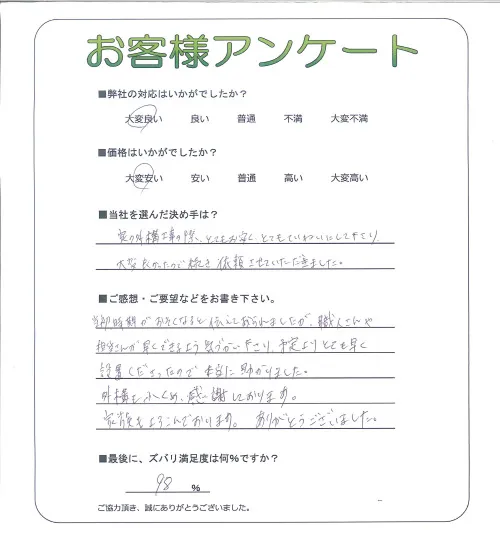 お客様アンケート
■弊社の対応はいかがでしたか？
大変良い 良い 普通 不満 大変不満
■価格はいかがでしたか？
大変安い 安い 普通 高い 大変高い
■当社を選んだ決め手は？
家の外構工事の際、とてもお安く、とてもていねいにして下さり
大変良かったので 依頼させていただきました。
■ご感想・ご要望などをお書き下さい。
時期がおそくなると伝えておられましたが、職人さんや
担当さんが早くできるよう気づかい下さり、予定よりとても早く
設置くださったので本当に助かりました。
外構もふくめ、感謝しております。
家族もよろこんでおります。ありがとうございました。
■最後に、ズバリ満足度は何％ですか？
98 ％
ご協力頂き、誠にありがとうございました。